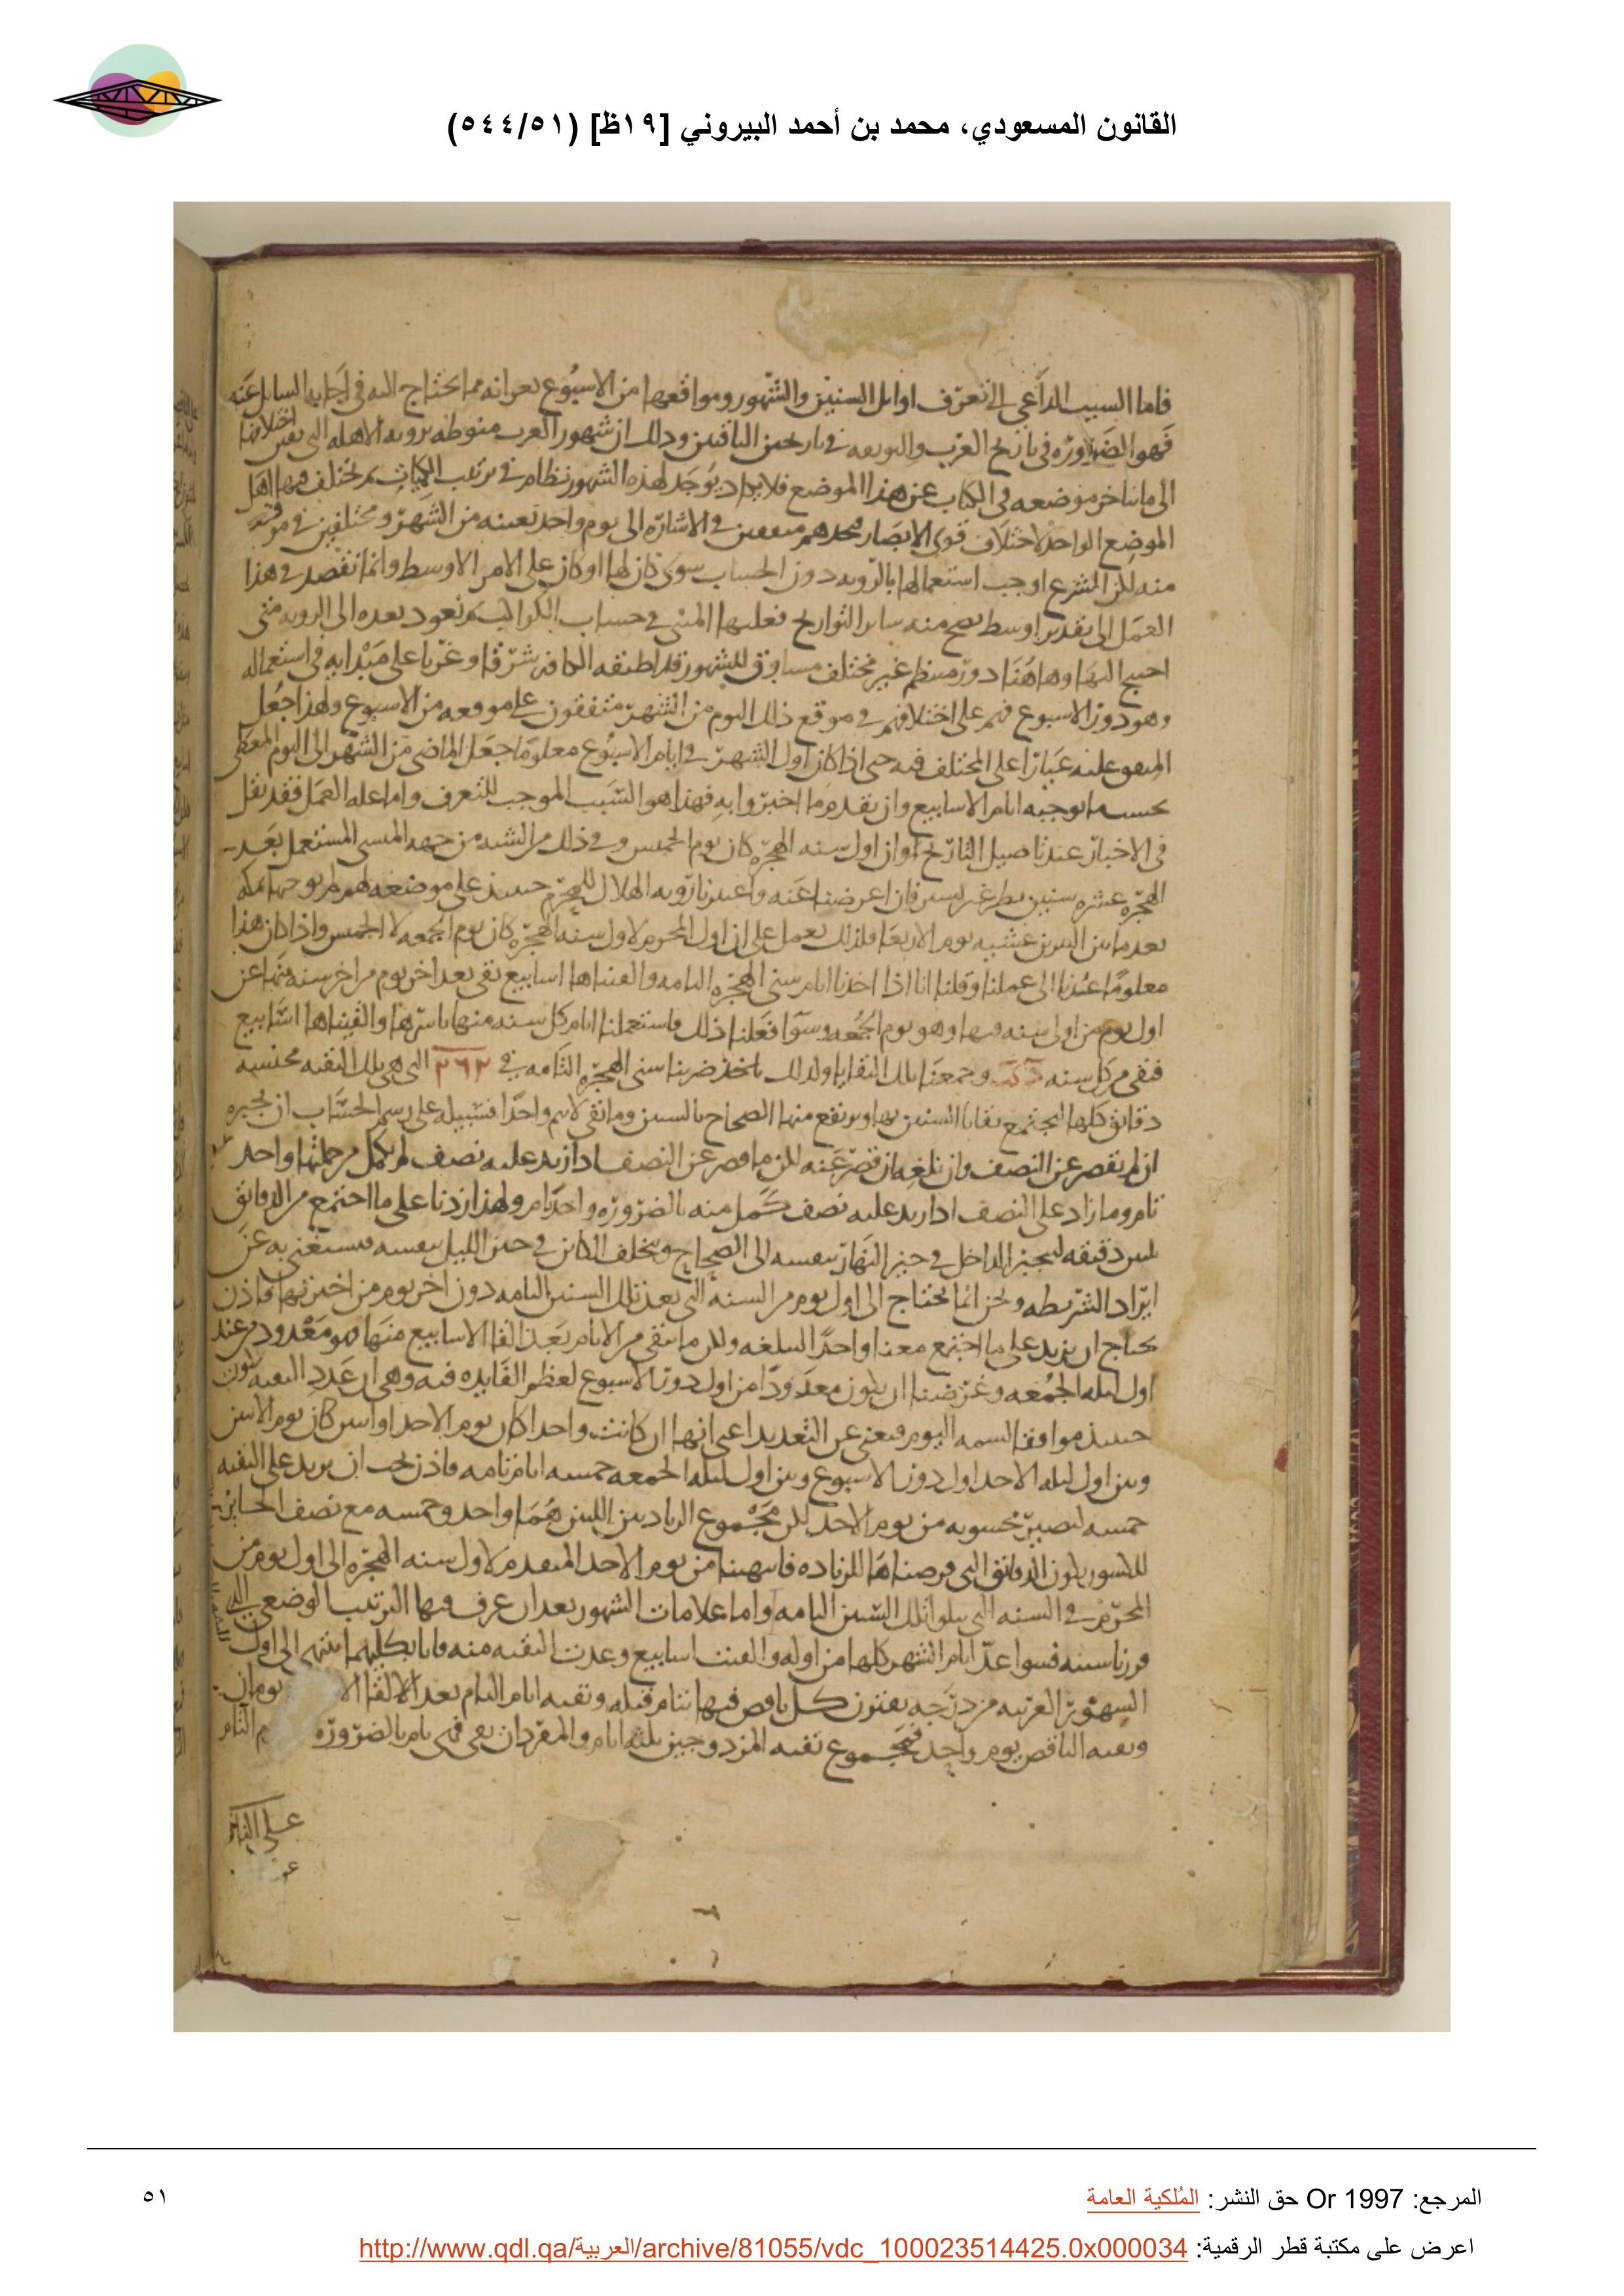 القانون المسعودي، محمد بن أحمد البيروني [١٩ظ] (٥٤٤/٥١)
فاما السبب الداعي الى تعرف اوائل السنين والشهور ومواقعها من الاسبوع بعد انه مما يحتاج اليه في اجابه السايل عنه
فهو الضروره في تاريخ العرب والىوىعه في تاريخين الباقيين وذلك ان شهور العرب منوطه برويه الاهله التي نفس اختلافها
الى ما تاخر موضعه في الكتاب عن هذا الموضع فلا يكاد يوجد لهذه الشهور نظام في ترتيب الكميات ثم يختلف فيها اهل
الموضع الواحد لاختلاف قوى الابصار فتجدهم متفقين في الاشاره الى يوم واحد بعينه من الشهر ومختلفين في موقعه
منه لكن الشرع اوجب استعمالها بالرويه دون الحساب سوى كان لها او كان على الامر الاوسط وانما نقصد في هذا
العمل الى تقدير اوسط يصح منه ساير التواريخ فعليها المبنى في حساب الكواكب ثم نعود بعده الى الرويه متى
احتيج اليها وهاهنا دور منتظم غير مختلف مساوق للشهور قد اطبقه الكافه شرقا وغربا على مبدايه في استعماله
وهو دور الاسبوع فهم على اختلافهم في موقع ذلك اليوم من الشهر متفقون على موقعه من الاسبوع ولهذا جعل
المتفق عليه عيارا على المختلف فيه حتى اذا كان اول الشهر في ايام الاسبوع معلوما جعل الماضي من الشهر الى اليوم المعطى
بحسب ما توجبه ايام الاسابيع وان تقدم ما اخبروا به فهذا هو السبب الموجب للتعرف واما عله العمل فقد نقل
في الاخبار عند تاصيل التاريخ ان اول سنه الهجره كان يوم الخميس وفي ذلك من الشبه من جهه المنسى المستعمل بعد
الهجره عشره سنين فان اعرضنا عنه واعتبرنا رويه الهلال للمحرم حينئذ على موضعه
بعد ما بين النيرين عشيه يوم الاربعا فلذلك يعمل على ان اول المحرم لاول سنه الهجره كان يوم الجمعه لا الخميس واذا كان هذا
معلوما عدنا الى عملنا وقلنا انا اذا اخذنا ايام سني الهجره التامه والقيناها اسابيع بقي بعد اخر يوم من اخر سنه منها عن
اول يوم من اول سنه فيها وهو يوم الجمعه وسوا فعلنا ذلك واستعملنا ايام كل سنه منها باسرها والقيناها اسابيع
فبقي من كل سنه د كب وجمعنا تلك البقايا ولذلك ضربنا سني الهجره التامه في ٢٦٢ التي هي تلك البقيه مجنسه
دقائق كلها ليجتمع بقايا السنين بها ويرتفع منها الصحاح بالستين وما بقي لا يتم واحدا فسبيله على رسم الحساب ان يجبره
ان لم يقصر عن النصف وان يلغيه ان قصر عنه لكن ما قصر عن النصف اذا زيد عليه نصف لم يكمل من جملتها واحد
تام وما زاد على النصف اذا زيد عليه نصف كمل منه بالضروره واحد تام ولهذا زدنا على ما اجتمع من الدقائق
ثلثين دقيقه ليجبر الداخل في حيز النهار بنفسه الى الصحاح ويتخلف الكاين في حيز الليل بنفسه فيستغني به عن
ايراد الشريطه ونحن انما نحتاج الى اول يوم من السنه التي بعد تلك السنين التامه دون اخر يوم من اخيرتها فاذن
نحتاج ان نزيد على ما اجتمع معنا واحدا لنبلغه ولكن ما يبقى من الايام بعد القا الاسابيع منها هو معدود من عند
اول ليله الجمعه وغرضنا ان يكون معدودا من اول دور الاسبوع لعظم الفايده فيه وهي ان عدد البقيه تكون
حينئذ موافقا لسمه اليوم فيغني عن التعديد اعني انها ان كانت واحدا كان يوم الاحد او اثنين كان يوم الاثنين
وبين اول ليله الاحد اول دور الاسبوع وبين اول ليله الجمعه خمسه ايام تامه فاذن يجب ان يزيد على البقيه
خمسه لتصير محسوبه من يوم الاحد لكن مجموع الزيادتين اللتين هما واحد وخمسه مع نصف الجابر
للكسور يكون الدقائق التي فرضناها للزياده فانتهينا من يوم الاحد المتقدم لاول سنه الهجره الى اول يوم من
المحرم في السنه التي يتلوا تلك السنين التامه واما علامات الشهور بعد ان عرف فيها الترتيب الوضعي الذي
قررناه فسوا عد ايام الشهر كلها من اوله والقيت اسابيع وعدت البقيه منه فانا بكليهما ننتهي الى اول
الشهور العربيه مزدوجه يقترن كل ناقص فيها بتام قبله وبقيه ايام التام بعد الالقا يومان
وبقيه الناقص يوم واحد فمجموع بقيه المزدوجين ثلثه ايام والمفردان بقي فهي تام بالضروره التام
المرجع: Or 1997 حق النشر: المُلكية العامة
٥١
اعرض على مكتبة قطر الرقمية: http://www.qdl.qa/العربية/archive/81055/vdc_100023514425.0x000034